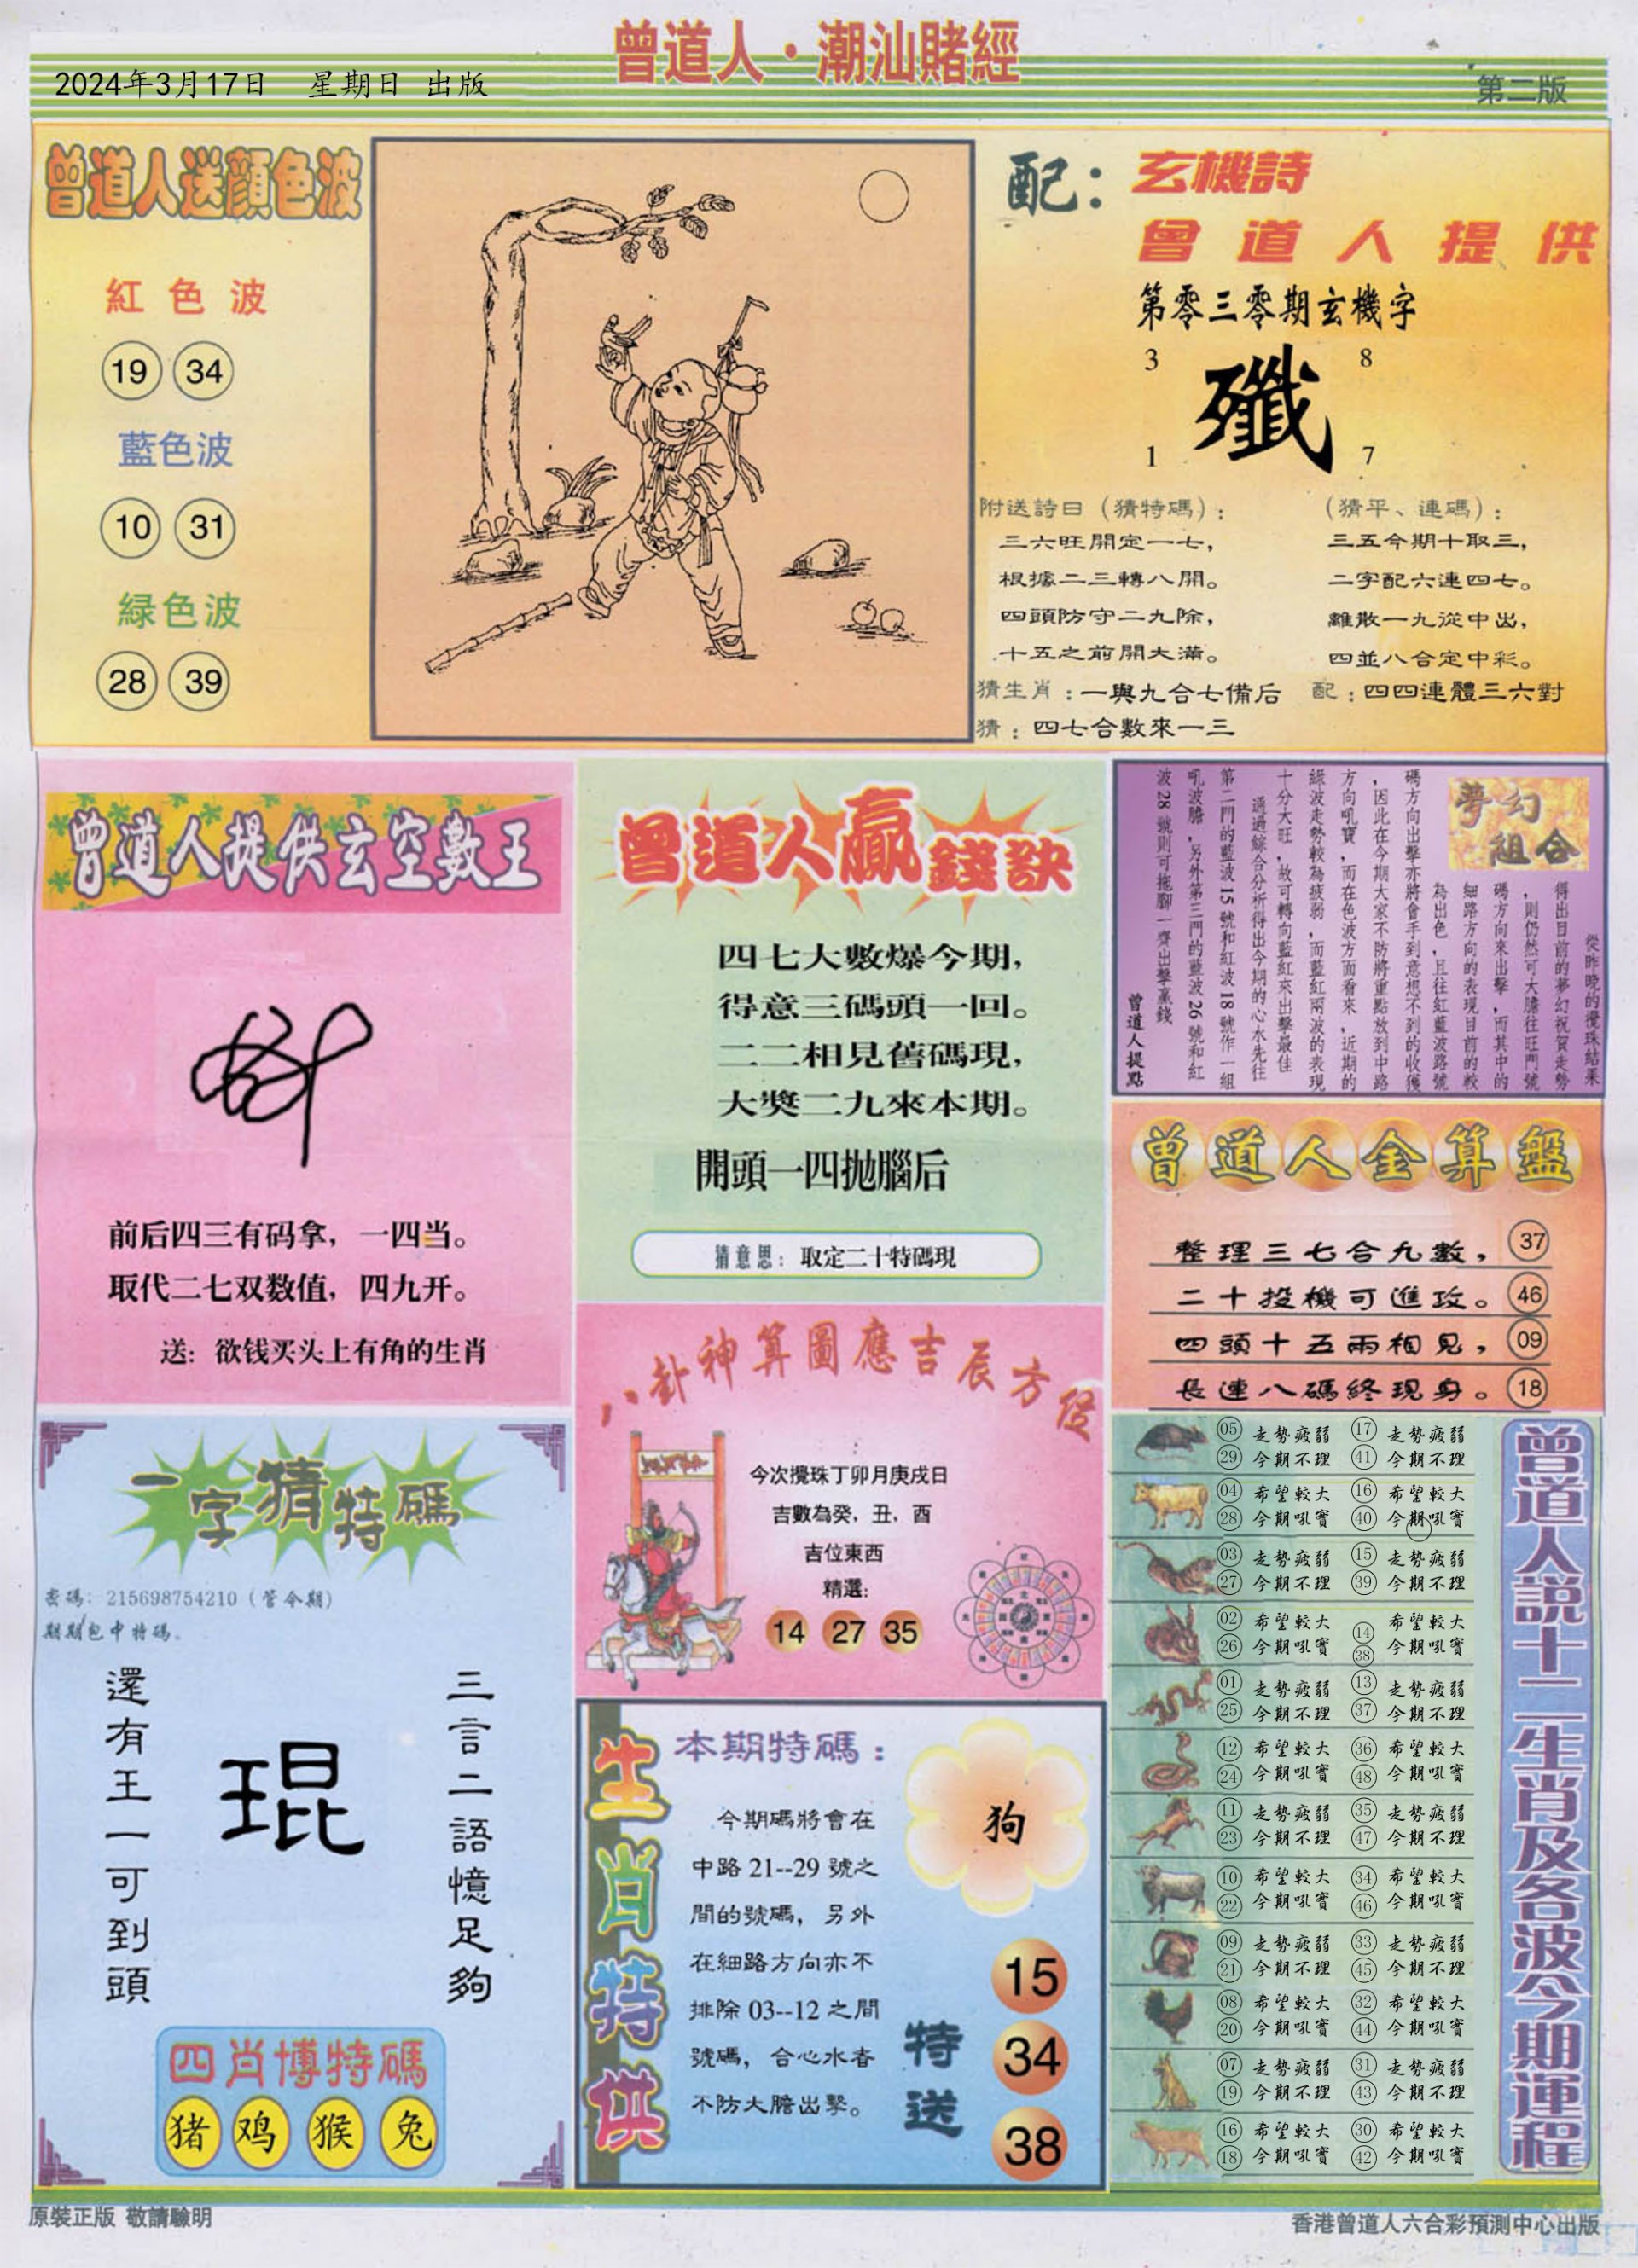 曾道人·潮汕賭經
2024年3月17日 星期日 出版
第二版
曾道人送顔色波
紅色波
19 34
藍色波
10 31
緑色波
28 39
配：玄機詩
曾道人提供
第零三零期玄機字
3 8
殲
1 7
附送詩曰（猜特碼）：
三六旺開定一七，
根據二三轉八開。
四頭防守二九除，
十五之前開大滿。
（猜平、連碼）：
三五今期十取三，
二字配六連四七。
離散一九從中出，
四並八合定中彩。
猜生肖：一與九合七備后 配：四四連體三六對
猜：四七合數來一三
曾道人提供玄空數王
前后四三有码拿，一四当。
取代二七双数值，四九开。
送：欲钱买头上有角的生肖
曾道人贏錢訣
四七大數爆今期，
得意三碼頭一回。
二二相見舊碼現，
大獎二九來本期。
開頭一四拋腦后
猜意思：取定二十特碼現
夢幻
組合
從昨晚的攪珠結果
得出目前的夢幻祝賀走勢
，則仍然可大膽往旺門號
碼方向來出擊，而其中的
細路方向的表現目前的較
為出色，且往紅藍波路號
碼方向出擊亦將會手到意想不到的收獲
，因此在今期大家不防將重點放到中路
方向吼寶，而在色波方面看來，近期的
綠波走勢較為疲弱，而藍紅兩波的表現
十分大旺，故可轉向藍紅來出擊最佳
通過綜合分析得出今期的心水先往
第二門的藍波15號和紅波18號作一組
吼波膽，另外第三門的藍波26號和紅
波28號則可拖腳一齊出擊贏錢
曾道人提點
曾道人金算盤
整理三七合九數， 37
二十投機可進攻。 46
四頭十五兩相見， 09
長連八碼終現身。 18
一字猜特碼
密碼：215698754210（管令期）
期期包中特碼。
三言二語憶足夠
琨
還有王一可到頭
四肖博特碼
猪 鸡 猴 兔
八卦神算圖應吉辰方位
今次攪珠丁卯月庚戌日
吉數為癸，丑，酉
吉位東西
精選：
14 27 35
生肖特供
本期特碼：
今期碼將會在
中路21--29號之
間的號碼，另外
在細路方向亦不
排除03--12之間
號碼，合心水者
不防大膽出擊。
狗
特送
15
34
38
曾道人說十二生肖及各波今期運程
05 走勢疲弱 17 走勢疲弱
29 今期不理 41 今期不理
04 希望較大 16 希望較大
28 今期吼實 40 今期吼實
03 走勢疲弱 15 走勢疲弱
27 今期不理 39 今期不理
02 希望較大 14 希望較大
26 今期吼實 38 今期吼實
01 走勢疲弱 13 走勢疲弱
25 今期不理 37 今期不理
12 希望較大 36 希望較大
24 今期吼實 48 今期吼實
11 走勢疲弱 35 走勢疲弱
23 今期不理 47 今期不理
10 希望較大 34 希望較大
22 今期吼實 46 今期吼實
09 走勢疲弱 33 走勢疲弱
21 今期不理 45 今期不理
08 希望較大 32 希望較大
20 今期吼實 44 今期吼實
07 走勢疲弱 31 走勢疲弱
19 今期不理 43 今期不理
16 希望較大 30 希望較大
18 今期吼實 42 今期吼實
原裝正版 敬請驗明
香港曾道人六合彩預測中心出版